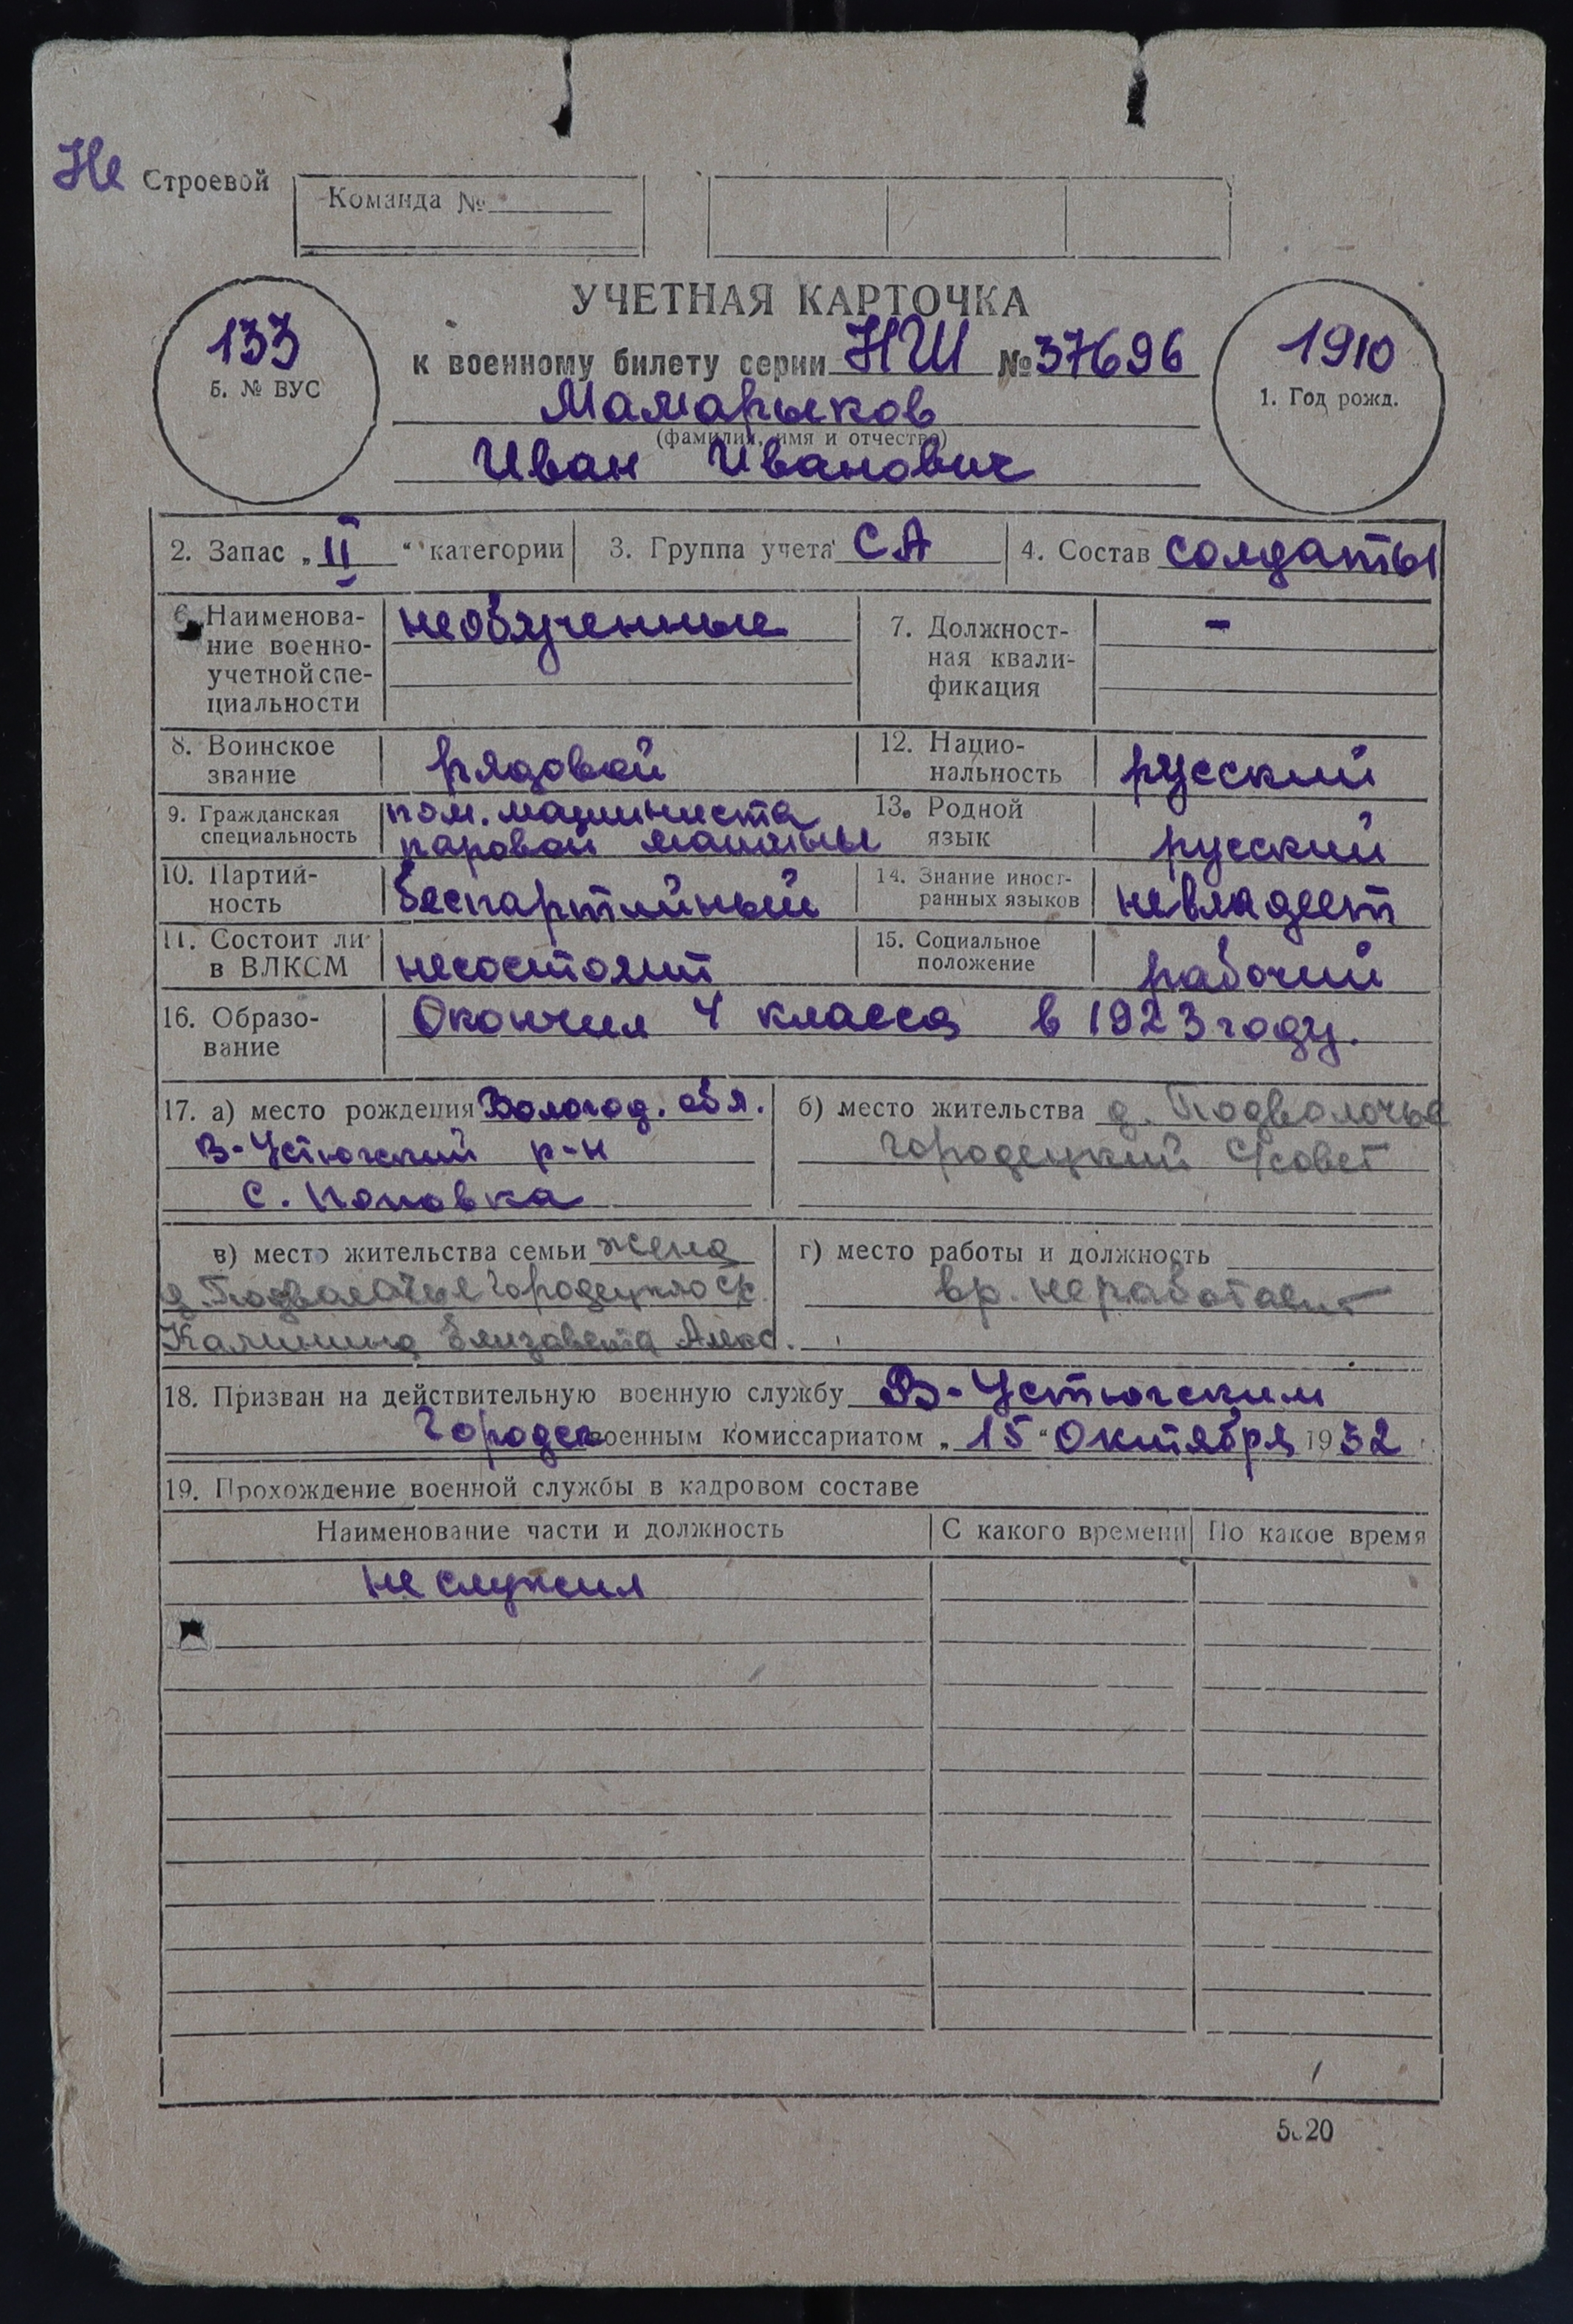 Не Строевой
Команда №
УЧЕТНАЯ КАРТОЧКА
133
б. № ВУС
к военному билету серии НШ № 37696
1910
1. Год рожд.
Мамарыков
(фамилия, имя и отчество)
Иван Иванович
2. Запас „II“ категории
3. Группа учета СА
4. Состав солдаты
6. Наименова-
ние военно-
учетной спе-
циальности
необученные
7. Должност-
ная квали-
фикация
-
8. Воинское
звание
рядовой
12. Нацио-
нальность
русский
9. Гражданская
специальность
пом. машиниста
паровой машины
13. Родной
язык
русский
10. Партий-
ность
беспартийный
14. Знание иност-
ранных языков
невладеет
11. Состоит ли
в ВЛКСМ
несостоит
15. Социальное
положение
рабочий
16. Образо-
вание
Окончил 4 класса в 1923 году.
17. а) место рождения Вологод. обл.
В-Устюгский р-н
с. Поповка
б) место жительства д. Подволочье
Городецкий С/совет
в) место жительства семьи жена
д. Подволочье Городецкого с/с.
Калинина Елизавета Алекс.
г) место работы и должность
вр. неработает
18. Призван на действительную военную службу В-Устюгским
Городск военным комиссариатом „15“ Октября 1932
19. Прохождение военной службы в кадровом составе
Наименование части и должность
С какого времени
По какое время
не служил
5.20